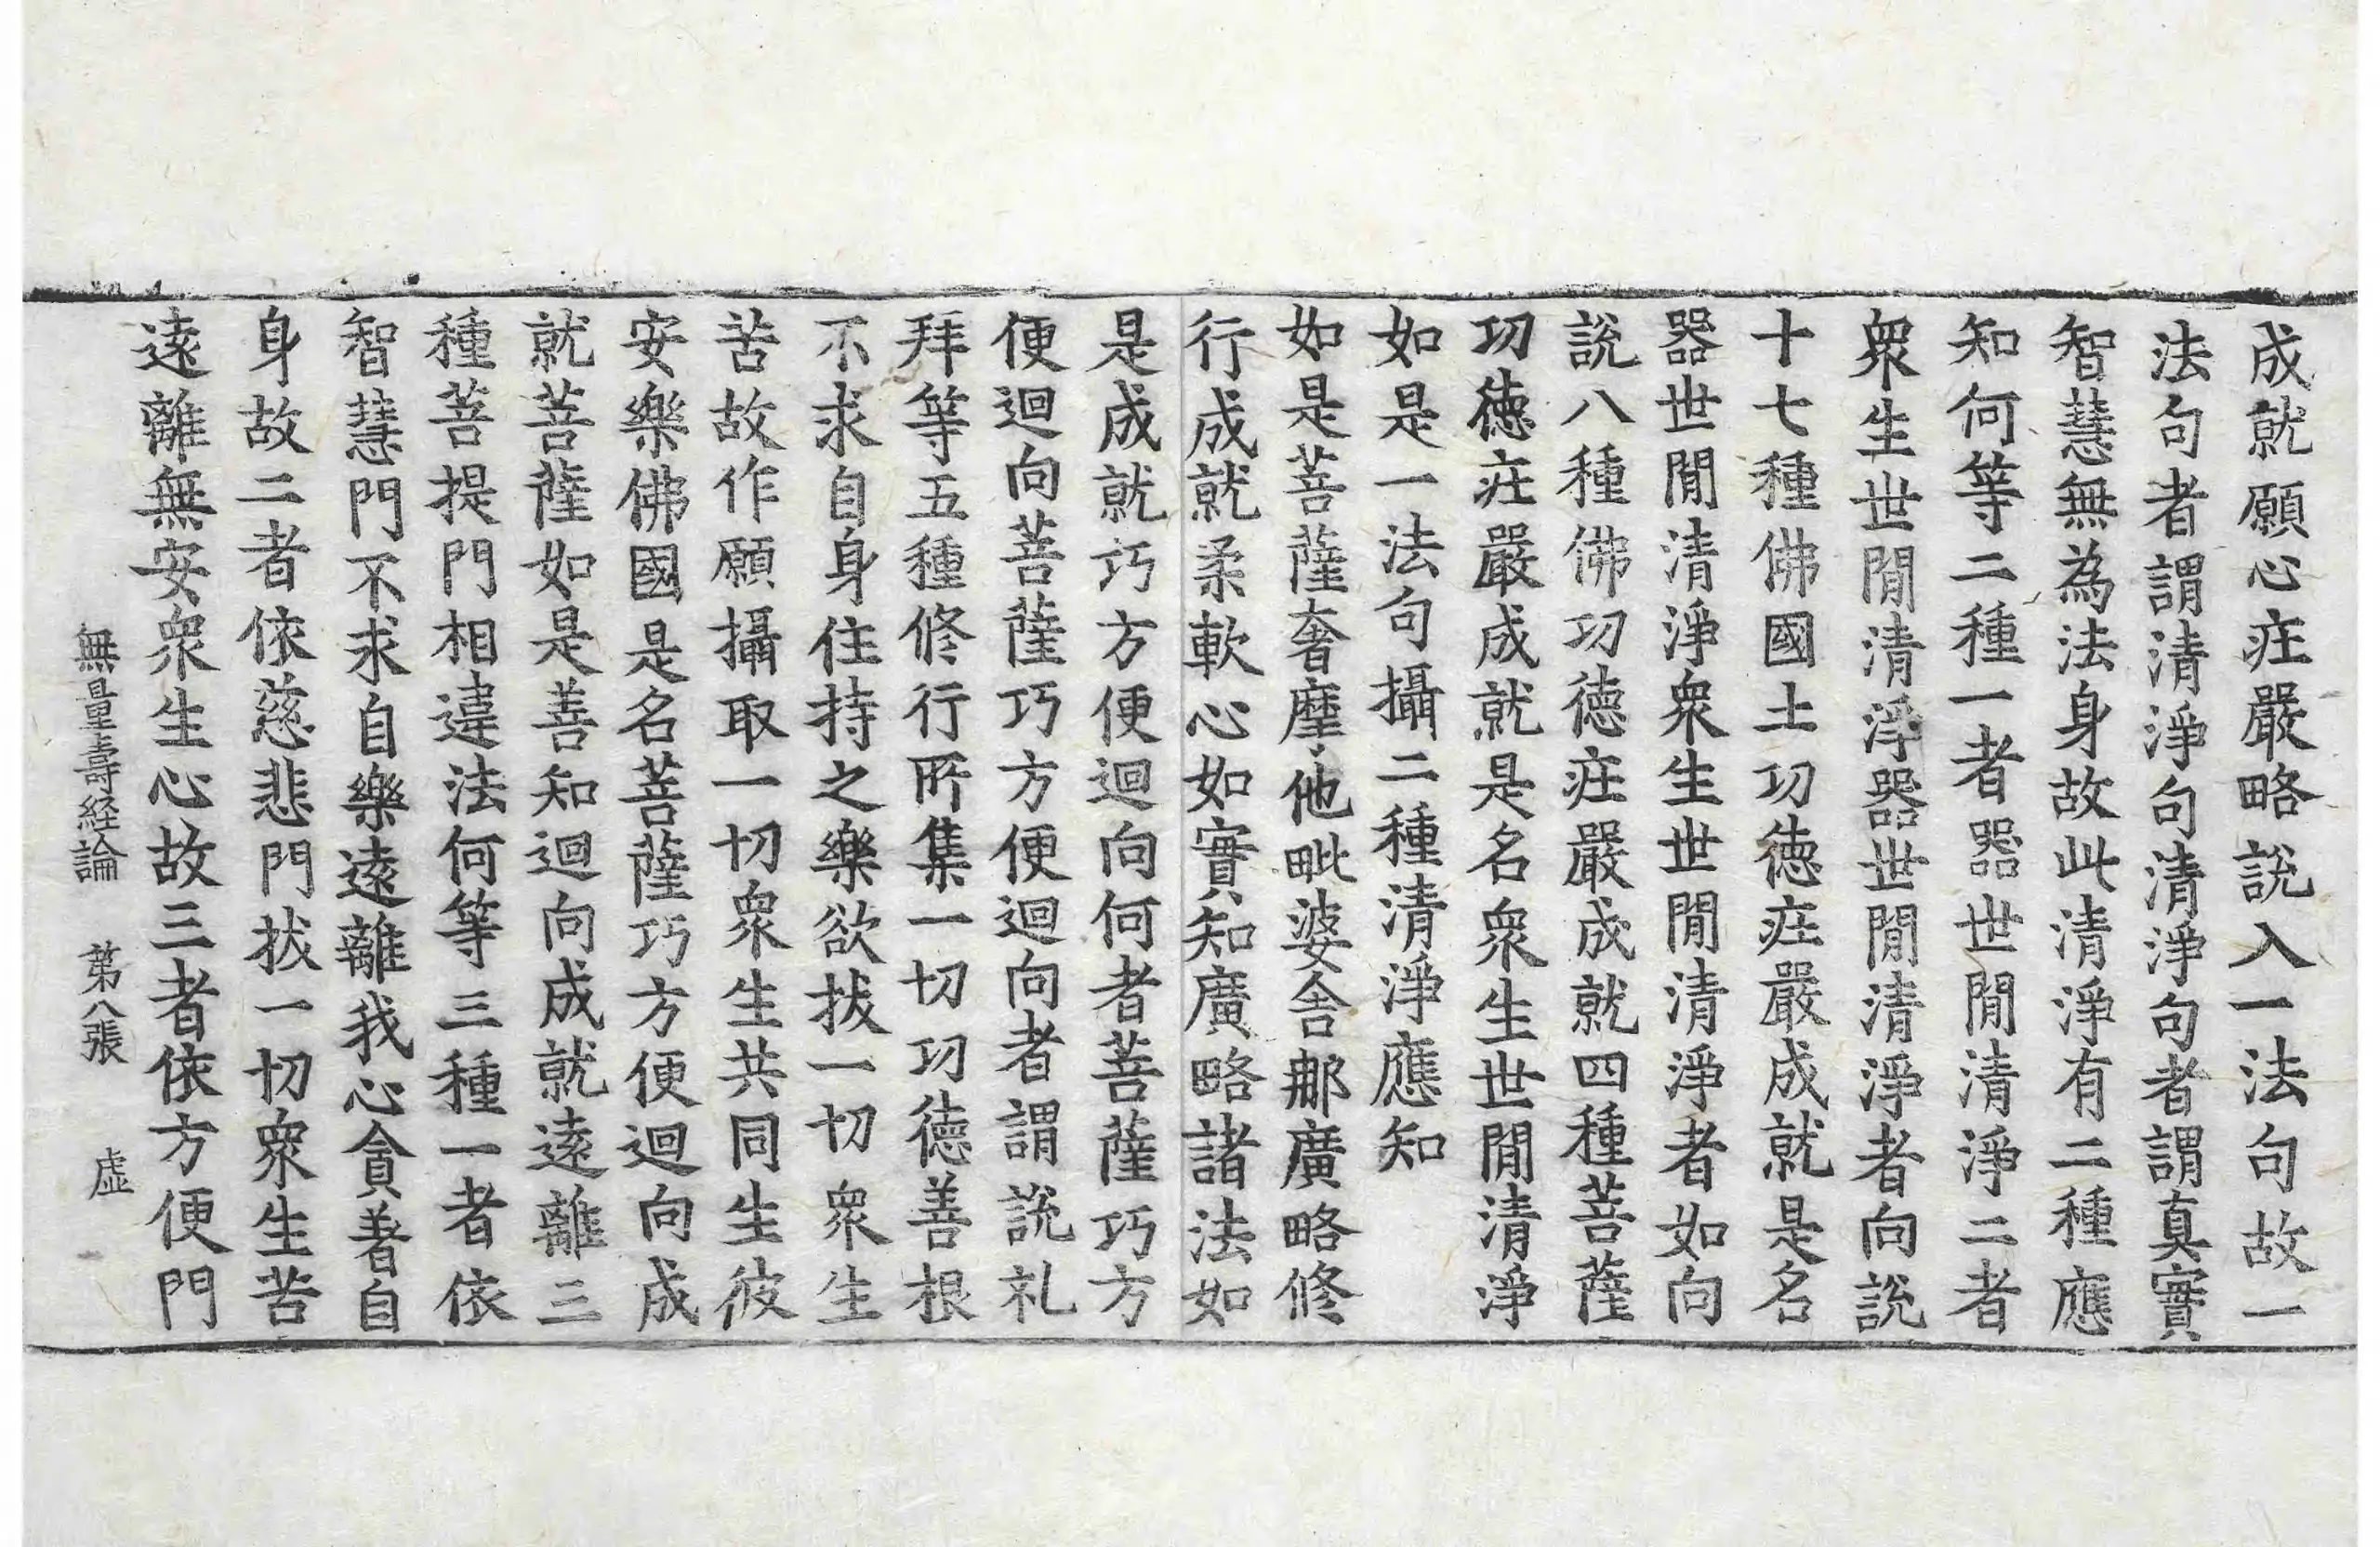 成就願心庄嚴略說入一法句故一
法句者謂清淨句清淨句者謂真實
智慧無為法身故此清淨有二種應
知何等二種一者器世間清淨二者
衆生世間清淨器世間清淨者向說
十七種佛國土功德庄嚴成就是名
器世間清淨衆生世間清淨者如向
說八種佛功德庄嚴成就四種菩薩
功德庄嚴成就是名衆生世間清淨
如是一法句攝二種清淨應知
如是菩薩奢摩他毗婆舍那廣略修
行成就柔軟心如實知廣略諸法如
是成就巧方便迴向何者菩薩巧方
便迴向菩薩巧方便迴向者謂說礼
拜等五種修行所集一切功德善根
不求自身住持之樂欲拔一切衆生
苦故作願攝取一切衆生共同生彼
安樂佛國是名菩薩巧方便迴向成
就菩薩如是善知迴向成就遠離三
種菩提門相違法何等三種一者依
智慧門不求自樂遠離我心貪著自
身故二者依慈悲門拔一切衆生苦
遠離無安衆生心故三者依方便門
無量壽経論 第八張 虛